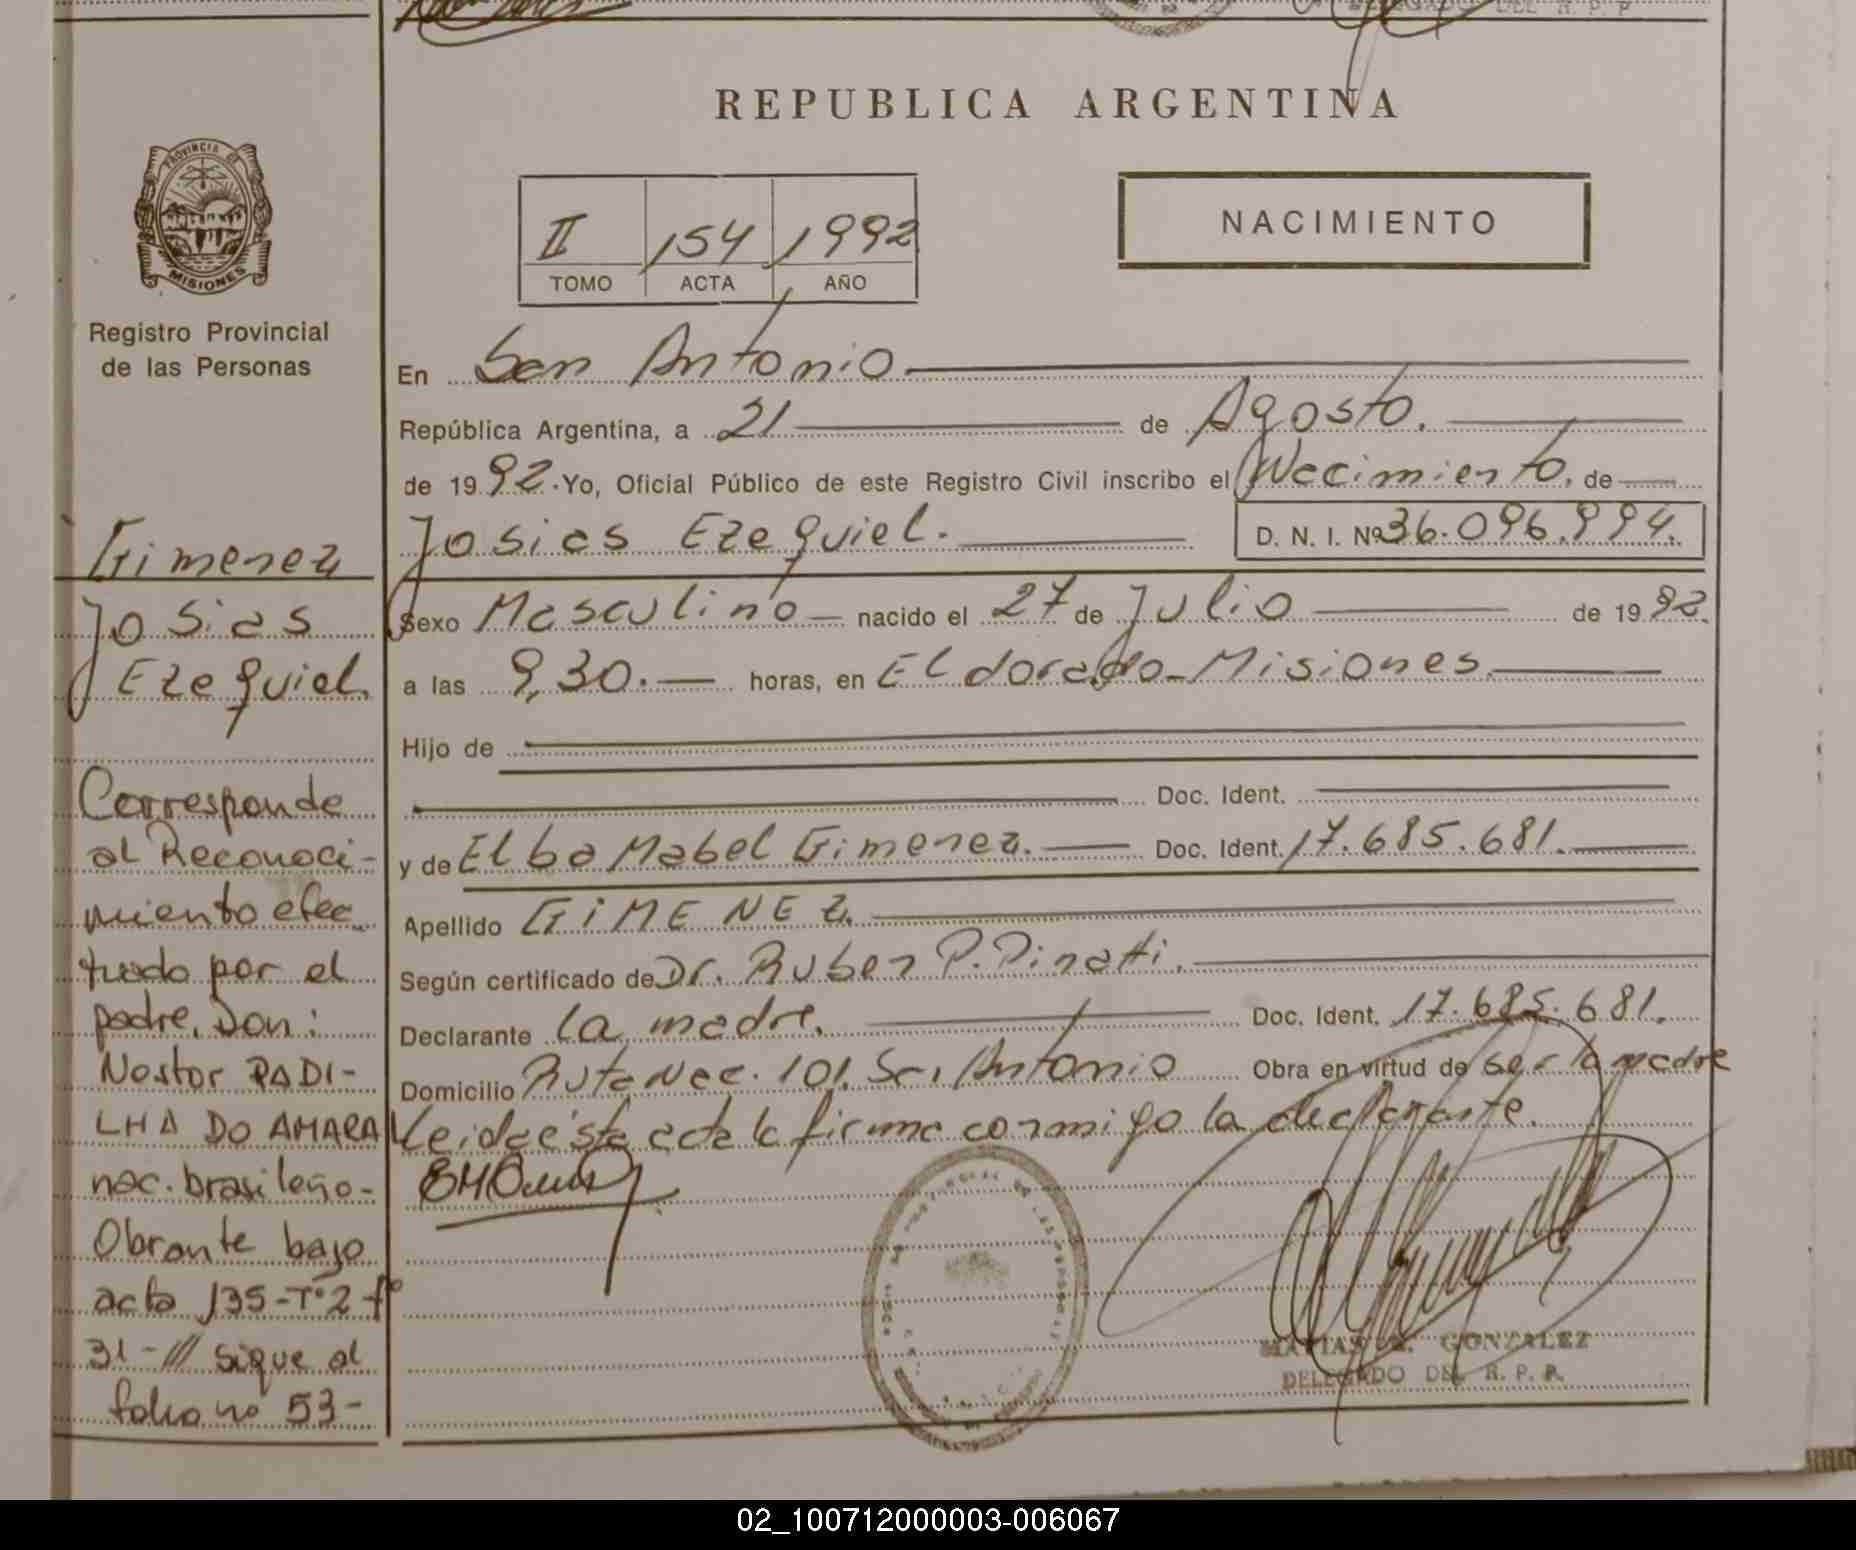 DELEGADO DEL R. P. P
REPUBLICA ARGENTINA
PROVINCIA DE
MISIONES
Registro Provincial
de las Personas
II 154 1992
TOMO ACTA AÑO
NACIMIENTO
En San Antonio.
República Argentina, a 21 de Agosto.
de 1992. Yo, Oficial Público de este Registro Civil inscribo el Nacimiento. de
Josias Ezequiel. D. N. I. Nº 36.096.994.
Sexo Masculino nacido el 27 de Julio de 1992.
a las 9,30. horas, en Eldorado-Misiones.
Hijo de
Doc. Ident.
y de Elba Mabel Gimenez. Doc. Ident. 17.685.681.
Apellido GiMENEZ.
Según certificado de Dr. Ruben P. Pinatti.
Declarante la madre. Doc. Ident. 17.685.681.
Domicilio Ruta Nac. 101. San Antonio Obra en virtud de ser la madre
Leida ésta acta la firma conmigo la declarante.
MATIAS GONZALEZ
DELEGADO DEL R. P. P.
Gimenez
Josias
Ezequiel.
Corresponde
al Reconoci-
miento efec
tuado por el
padre, Don:
Nestor PADI-
LHA DO AMARA
nac. brasileño-
Obrante bajo
acta 135-Tº2-fº
31-/// sigue al
folio no 53-
02_100712000003-006067